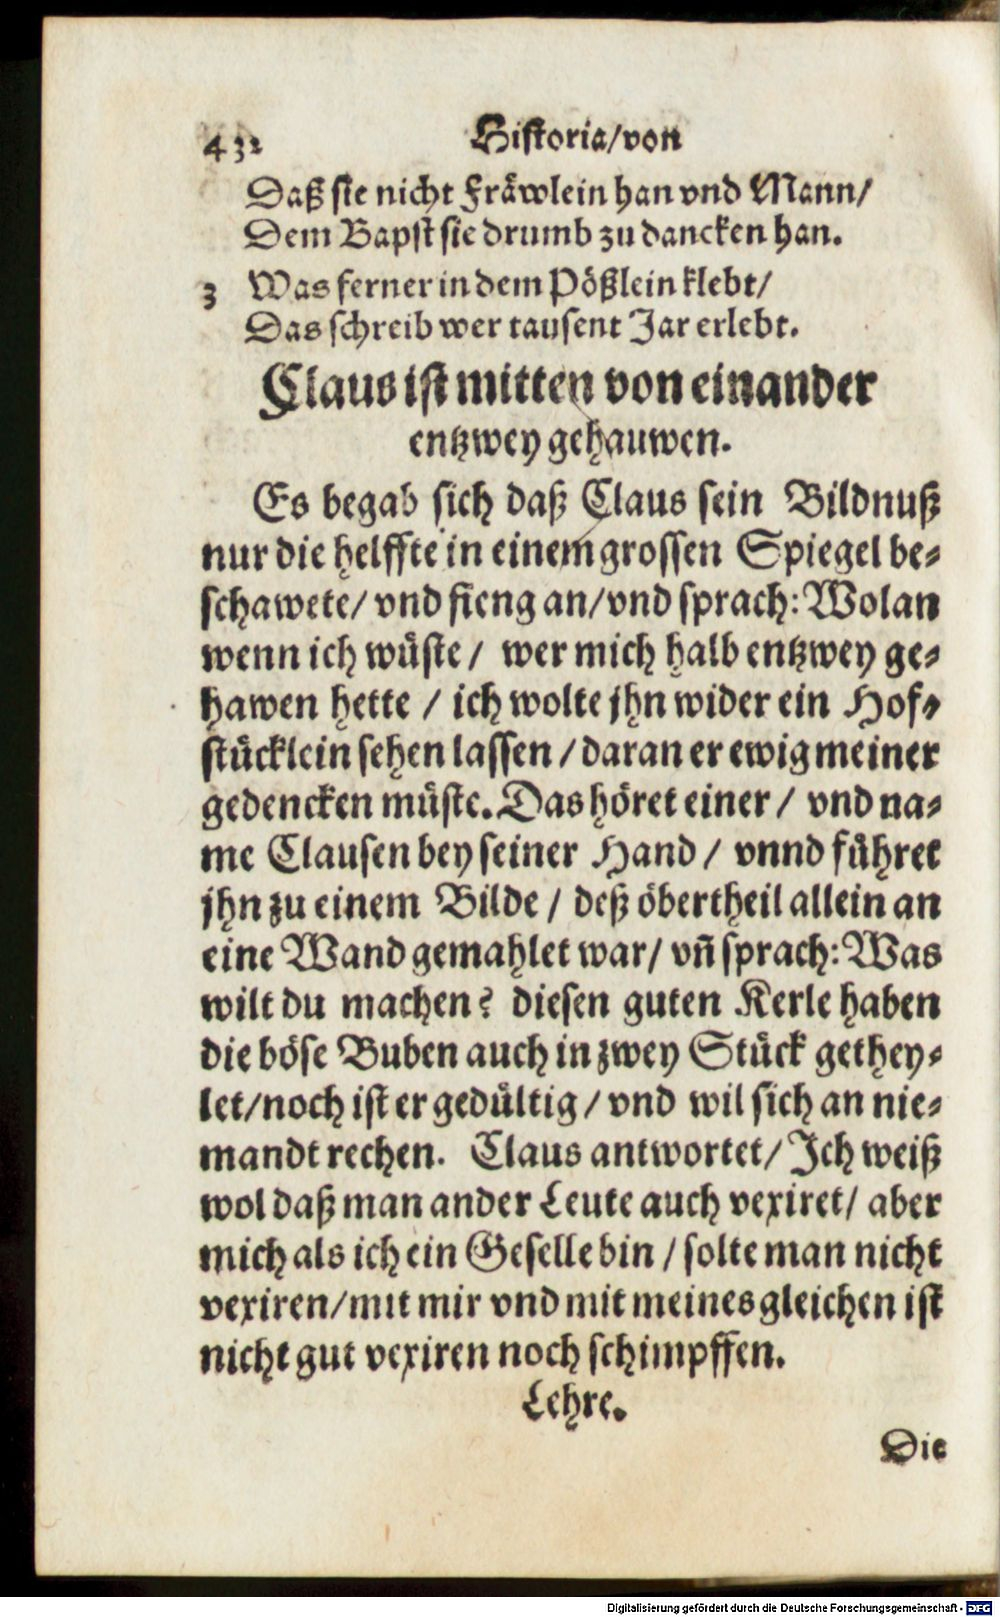 432 Historia/von
Daß sie nicht Fräwlein han vnd Mann/
Dem Bapst sie drumb zu dancken han.
3 Was ferner in dem Pößlein klebt/
Das schreib wer tausent Jar erlebt.
Claus ist mitten von einander
entzwey gehauwen.
Es begab sich daß Claus sein Bildnuß
nur die helffte in einem grossen Spiegel be-
schawete/ vnd fieng an/vnd sprach: Wolan
wenn ich wüste / wer mich halb entzwey ge-
hawen hette / ich wolte jhn wider ein Hof-
stücklein sehen lassen / daran er ewig meiner
gedencken müste. Das höret einer / vnd na-
me Clausen bey seiner Hand / vnnd führet
jhn zu einem Bilde / deß öbertheil allein an
eine Wand gemahlet war/ vñ sprach: Was
wilt du machen? diesen guten Kerle haben
die böse Buben auch in zwey Stück gethey-
let/noch ist er gedültig / vnd wil sich an nie-
mandt rechen. Claus antwortet/ Ich weiß
wol daß man ander Leute auch vexiret/ aber
mich als ich ein Geselle bin / solte man nicht
vexiren/mit mir vnd mit meines gleichen ist
nicht gut vexiren noch schimpffen.
Lehre.
Die
Digitalisierung gefördert durch die Deutsche Forschungsgemeinschaft - DFG